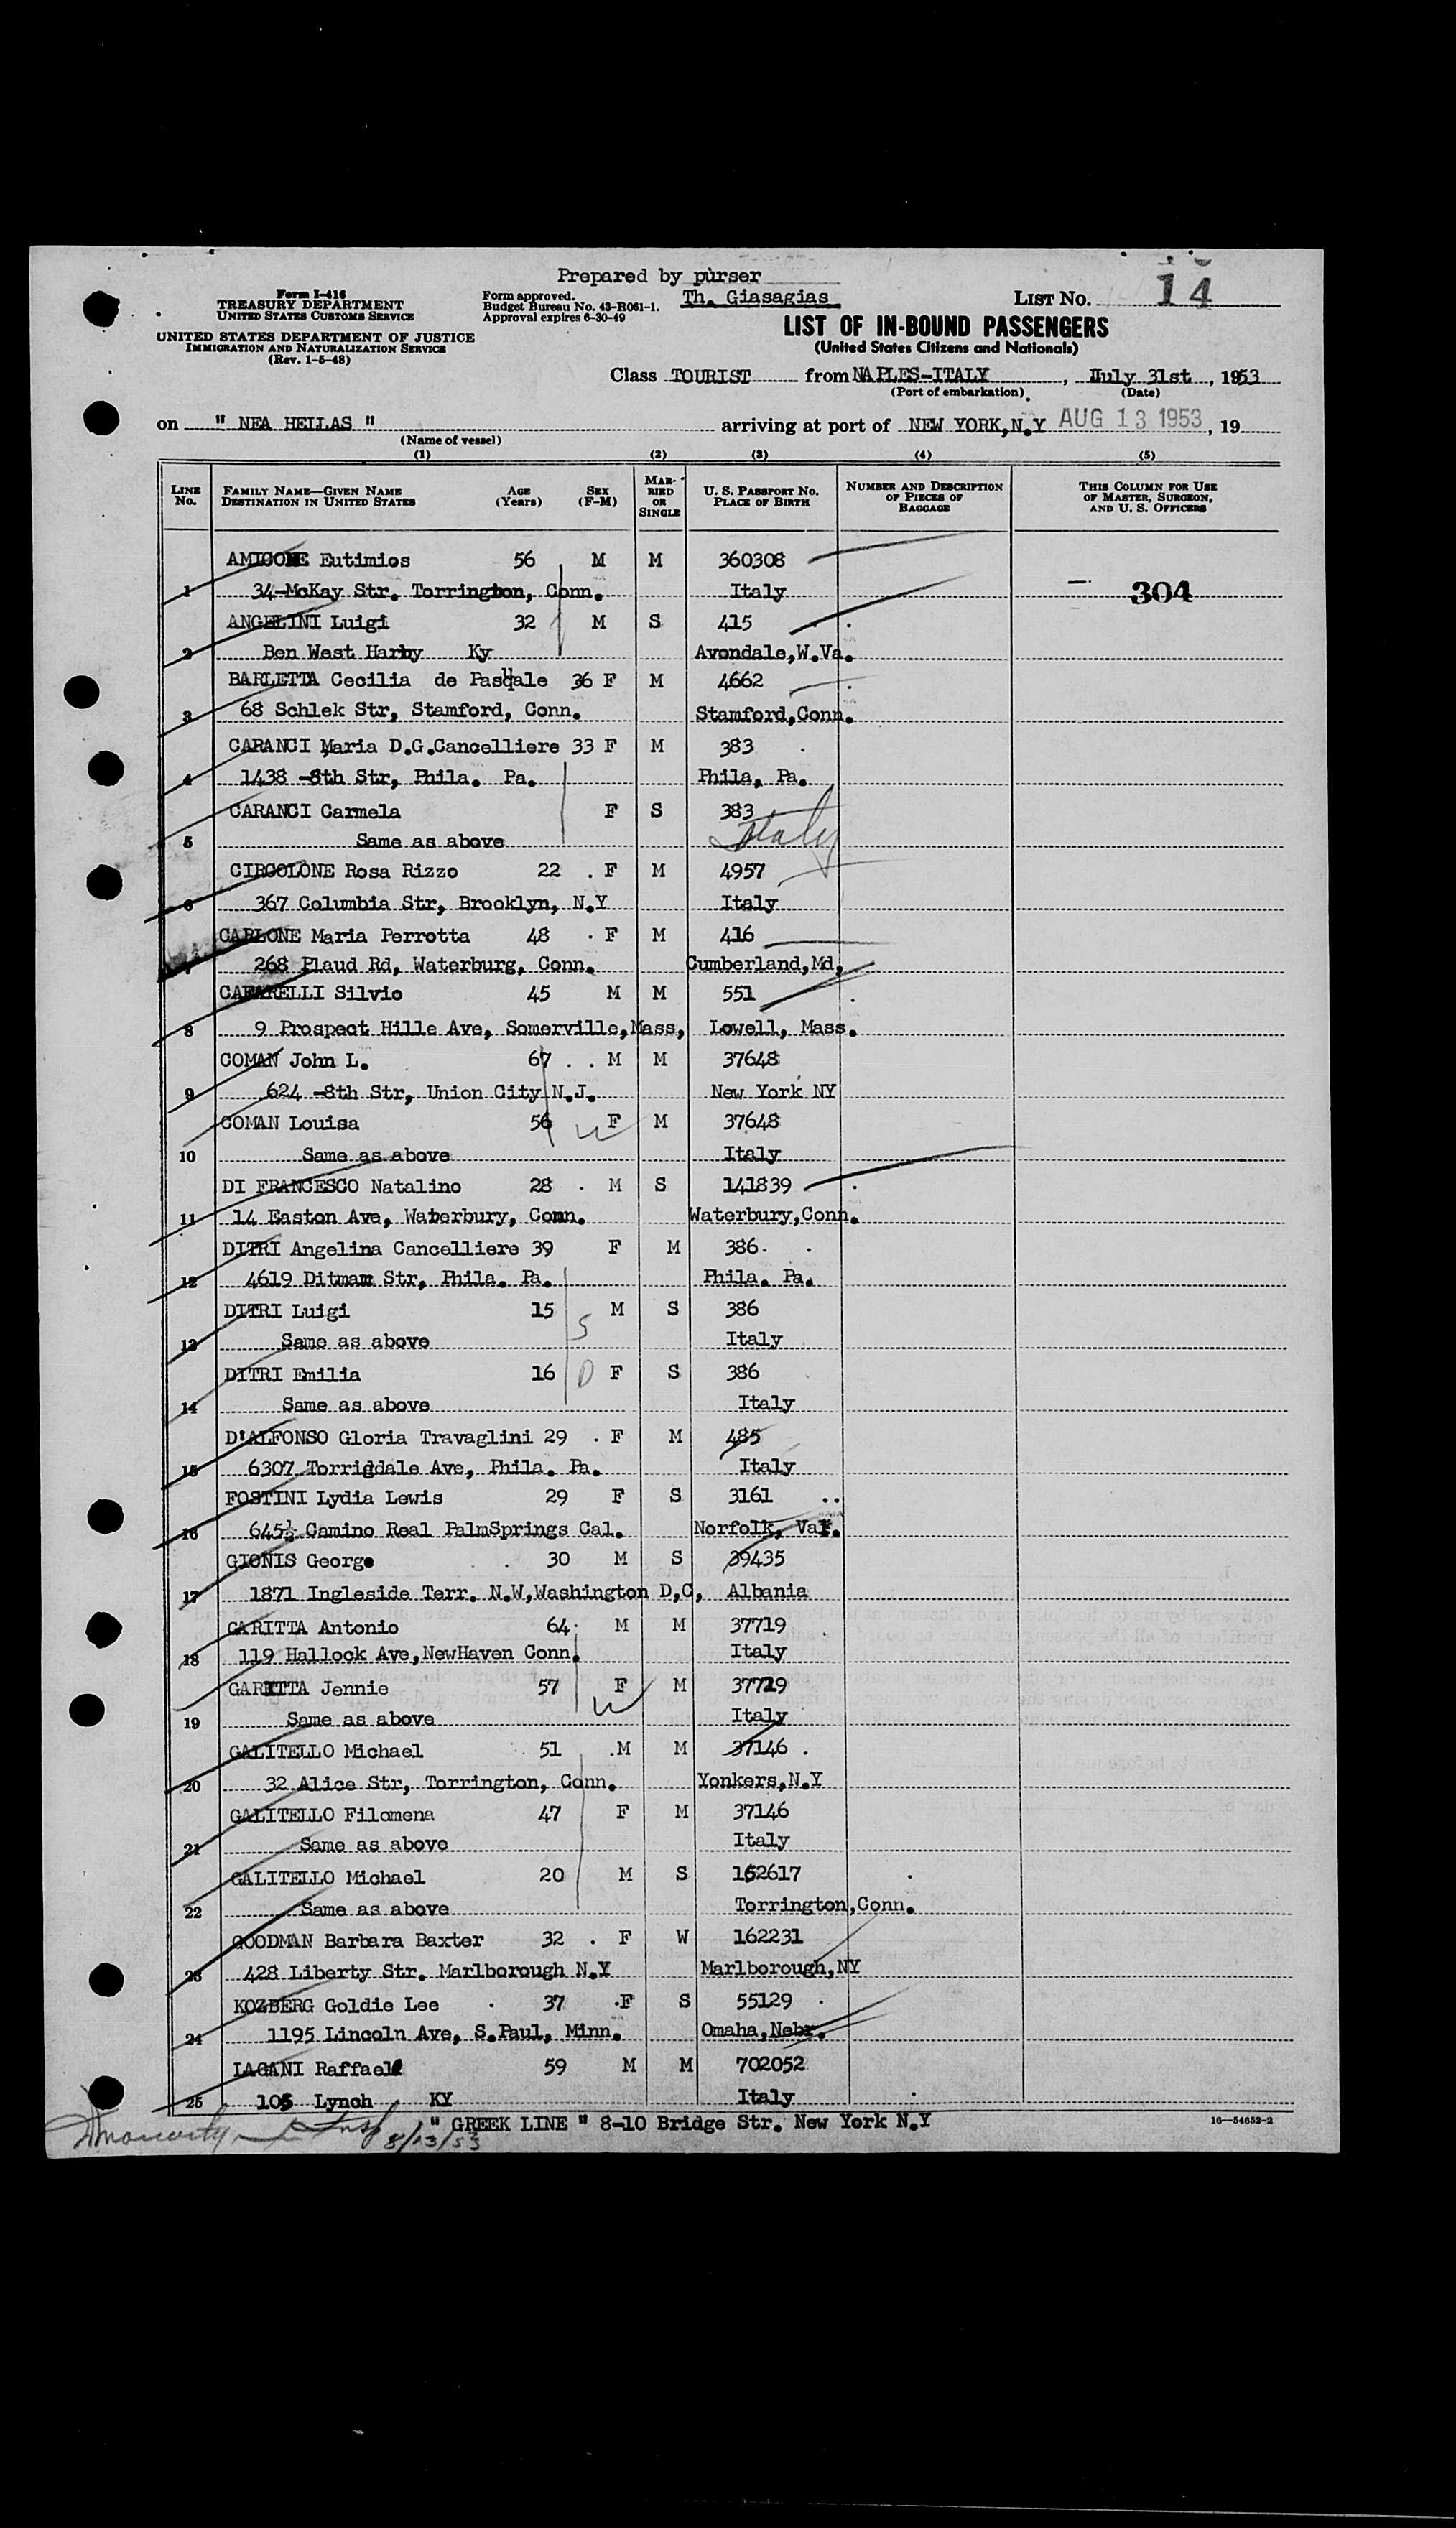 Prepared by purser
Form I-416
TREASURY DEPARTMENT
UNITED STATES CUSTOMS SERVICE
Form approved.
Budget Bureau No. 43-R061-1.
Approval expires 6-30-49
Th. Giasagias
LIST NO. 14
UNITED STATES DEPARTMENT OF JUSTICE
IMMIGRATION AND NATURALIZATION SERVICE
(Rev. 1-5-48)
LIST OF IN-BOUND PASSENGERS
(United States Citizens and Nationals)
Class TOURIST from NAPLES-ITALY, July 31st, 1953
(Port of embarkation) (Date)
on " NEA HELLAS " arriving at port of NEW YORK,N.Y AUG 13 1953, 19
(Name of vessel)
(1) (2) (3) (4) (5)
LINE No. FAMILY NAME—GIVEN NAME DESTINATION IN UNITED STATES AGE (Years) SEX (F-M) MARRIED OR SINGLE U. S. PASSPORT NO. PLACE OF BIRTH NUMBER AND DESCRIPTION OF PIECES OF BAGGAGE THIS COLUMN FOR USE OF MASTER, SURGEON, AND U. S. OFFICERS
AMICONE Eutimios 56 M M 360308
1 34-McKay Str. Torrington, Conn. Italy 304
ANGELINI Luigi 32 M S 415
2 Ben West Harby Ky Avondale,W.Va.
BARLETTA Cecilia de Pasquale 36 F M 4662
3 68 Schlek Str, Stamford, Conn. Stamford,Conn.
CARANCI Maria D.G.Cancelliere 33 F M 383
4 1438 -8th Str, Phila. Pa. Phila, Pa.
CARANCI Carmela F S 383
5 Same as above Italy
CIRCOLONE Rosa Rizzo 22 F M 4957
6 367 Columbia Str, Brooklyn, N.Y Italy
CARLONE Maria Perrotta 48 F M 416
7 268 Plaud Rd, Waterburg, Conn. Cumberland,Md.
CAFARELLI Silvio 45 M M 551
8 9 Prospect Hille Ave, Somerville,Mass, Lowell, Mass.
COMAN John L. 67 M M 37648
9 624 -8th Str, Union City N.J. New York NY
COMAN Louisa 56 W F M 37648
10 Same as above Italy
DI FRANCESCO Natalino 28 M S 141839
11 14 Easton Ave, Waterbury, Conn. Waterbury,Conn.
DITRI Angelina Cancelliere 39 F M 386
12 4619 Ditmam Str, Phila. Pa. Phila. Pa.
DITRI Luigi 15 S M S 386
13 Same as above Italy
DITRI Emilia 16 D F S 386
14 Same as above Italy
D'ALFONSO Gloria Travaglini 29 F M 485
15 6307 Torriddale Ave, Phila. Pa. Italy
FOSTINI Lydia Lewis 29 F S 3161
16 645½ Camino Real PalmSprings Cal. Norfolk, Va.
GIONIS George 30 M S 39435
17 1871 Ingleside Terr. N.W,Washington D,C, Albania
GARITTA Antonio 64 M M 37719
18 119 Hallock Ave,NewHaven Conn. Italy
GARITTA Jennie 57 W F M 37719
19 Same as above Italy
GALITELLO Michael 51 M M 37146
20 32 Alice Str, Torrington, Conn. Yonkers,N.Y
GALITELLO Filomena 47 F M 37146
21 Same as above Italy
GALITELLO Michael 20 M S 162617
22 Same as above Torrington,Conn.
GOODMAN Barbara Baxter 32 F W 162231
23 428 Liberty Str. Marlborough N.Y Marlborough,NY
KOZBERG Goldie Lee 37 F S 55129
24 1195 Lincoln Ave, S.Paul, Minn. Omaha,Nebr.
IAGANI Raffaele 59 M M 702052
25 105 Lynch KY Italy
8/13/53 " GREEK LINE " 8-10 Bridge Str. New York N.Y 16—54652-2